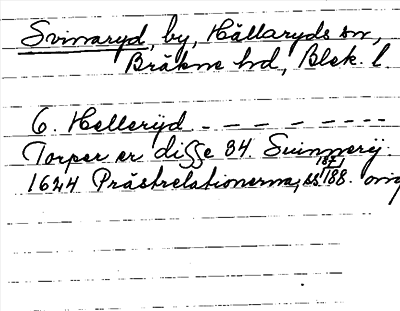 Svinaryd, by, Hällaryds sn,
Bräkne hd, Blek. l.
6. Helleryd - - - - - - - -
Torper er disse 34. Suinnerij.
1624 Prästrelationerna, ss 187, 188. orig